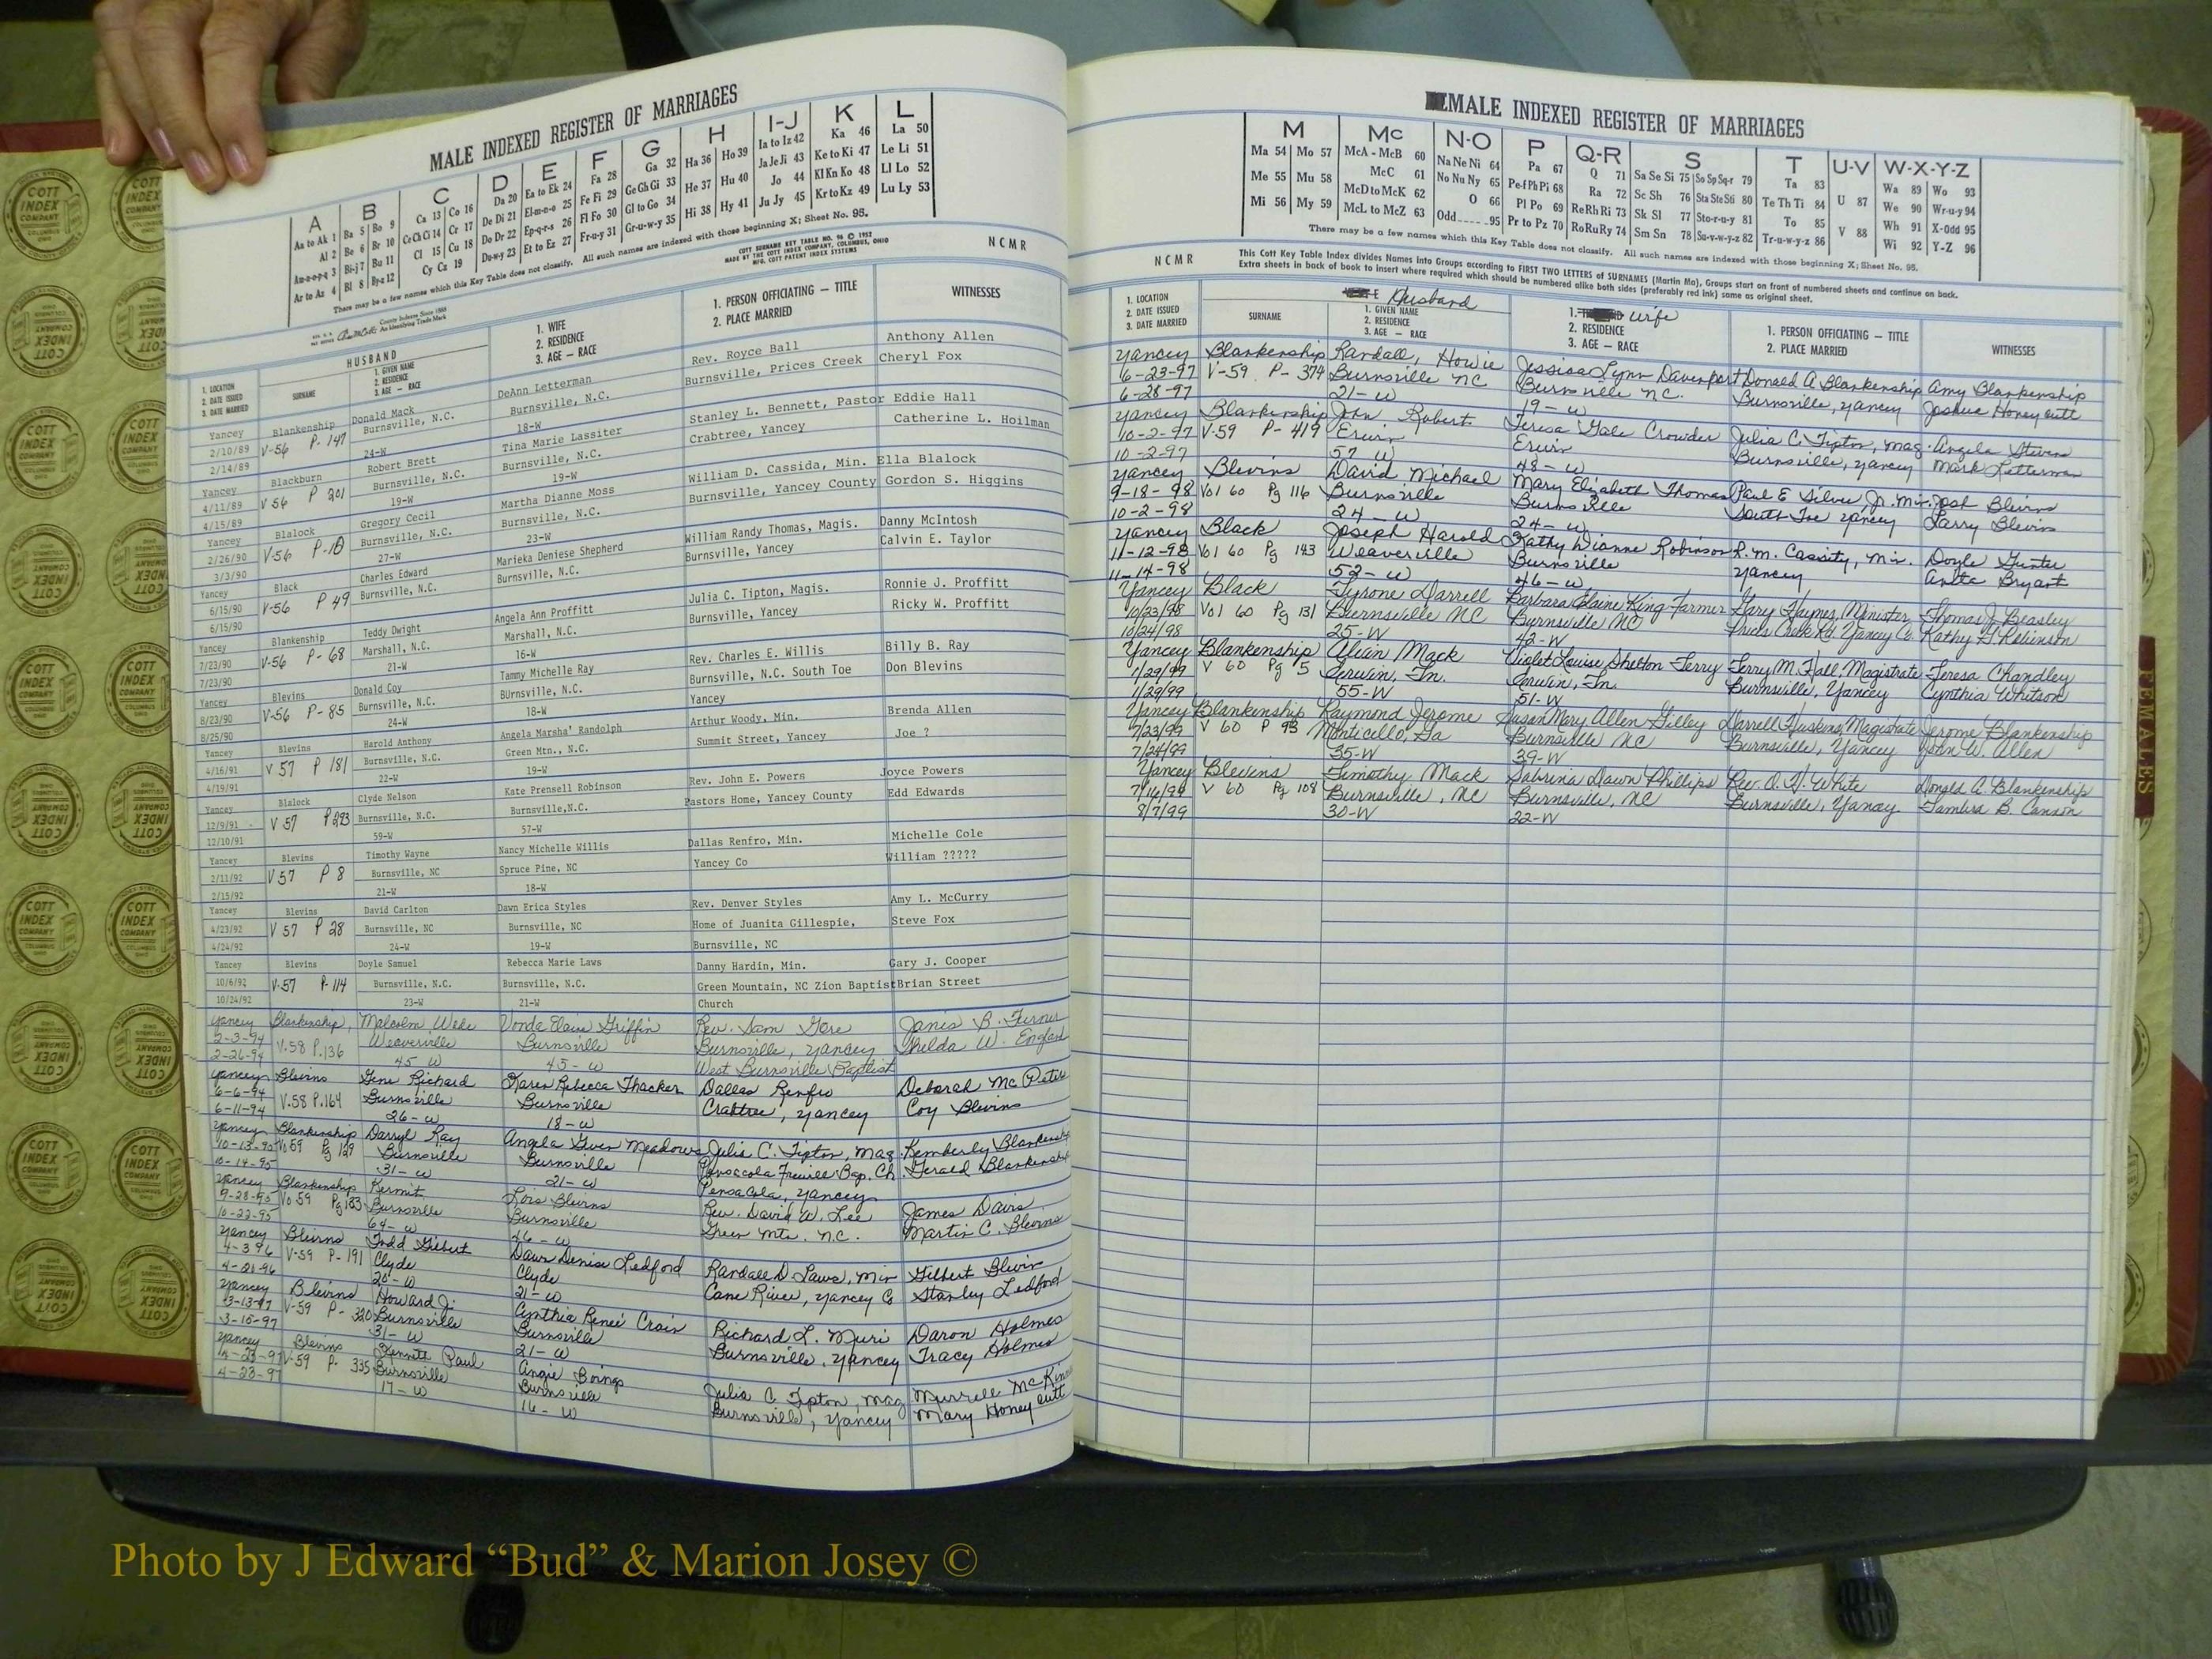 MALE INDEXED REGISTER OF MARRIAGES
A B C D E F G H I-J K L
Aa to Ak 1 Ba 5 Bo 9 Ca 13 Co 16 Da 20 Ea to Ek 24 Fa 28 Ga 32 Ha 36 Ho 39 Ia to Iz 42 Ka 46 La 50
Al 2 Be 6 Br 10 Ce Ch Ci 14 Cr 17 De Di 21 El-m-n-o 25 Fe Fi 29 Ge Gh Gi 33 He 37 Hu 40 Ja Je Ji 43 Ke to Ki 47 Le Li 51
Am-n-o-p-q 3 Bi-j 7 Bu 11 Cl 15 Cu 18 Do Dr 22 Ep-q-r-s 26 Fl Fo 30 Gl to Go 34 Hi 38 Hy 41 Jo 44 Kl Kn Ko 48 Ll Lo 52
Ar to Az 4 Bl 8 By-z 12 Cy Cz 19 Du-w-y 23 Et to Ez 27 Fr-u-y 31 Gr-u-w-y 35 Ju Jy 45 Kr to Kz 49 Lu Ly 53
There may be a few names which this Key Table does not classify. All such names are indexed with those beginning X; Sheet No. 95.
County Indexes Since 1888
An Identifying Trade Mark
COTT SURNAME KEY TABLE NO. 96 © 1952
MADE BY THE COTT INDEX COMPANY, COLUMBUS, OHIO
MFG. COTT PATENT INDEX SYSTEMS
NCMR
1. LOCATION
2. DATE ISSUED
3. DATE MARRIED
HUSBAND
SURNAME
1. GIVEN NAME
2. RESIDENCE
3. AGE — RACE
1. WIFE
2. RESIDENCE
3. AGE — RACE
1. PERSON OFFICIATING — TITLE
2. PLACE MARRIED
WITNESSES
Yancey Blankenship Donald Mack DeAnn Letterman Rev. Royce Ball Anthony Allen
2/10/89 V-56 P. 147 Burnsville, N.C. Burnsville, N.C. Burnsville, Prices Creek Cheryl Fox
2/14/89 24-W 18-W
Yancey Blackburn Robert Brett Tina Marie Lassiter Stanley L. Bennett, Pastor Eddie Hall
4/11/89 V 56 P 201 Burnsville, N.C. Burnsville, N.C. Crabtree, Yancey Catherine L. Hoilman
4/15/89 19-W 19-W
Yancey Blalock Gregory Cecil Martha Dianne Moss William D. Cassida, Min. Ella Blalock
2/26/90 V-56 P-10 Burnsville, N.C. Burnsville, N.C. Burnsville, Yancey County Gordon S. Higgins
3/3/90 27-W 23-W
Yancey Black Charles Edward Marieka Deniese Shepherd William Randy Thomas, Magis. Danny McIntosh
6/15/90 V-56 P 49 Burnsville, N.C. Burnsville, N.C. Burnsville, Yancey Calvin E. Taylor
6/15/90
Yancey Blankenship Teddy Dwight Angela Ann Proffitt Julia C. Tipton, Magis. Ronnie J. Proffitt
7/23/90 V-56 P-68 Marshall, N.C. Marshall, N.C. Burnsville, Yancey Ricky W. Proffitt
7/23/90 21-W 16-W
Yancey Blevins Donald Coy Tammy Michelle Ray Rev. Charles E. Willis Billy B. Ray
8/23/90 V-56 P-85 Burnsville, N.C. BUrnsville, N.C. Burnsville, N.C. South Toe Don Blevins
8/25/90 24-W 18-W Yancey
Yancey Blevins Harold Anthony Angela Marsha' Randolph Arthur Woody, Min. Brenda Allen
4/16/91 V 57 P 181 Burnsville, N.C. Green Mtn., N.C. Summit Street, Yancey Joe ?
4/19/91 22-W 19-W
Yancey Blalock Clyde Nelson Kate Prensell Robinson Rev. John E. Powers Joyce Powers
12/9/91 V 57 P 283 Burnsville, N.C. Burnsville,N.C. Pastors Home, Yancey County Edd Edwards
12/10/91 59-W 57-W
Yancey Blevins Timothy Wayne Nancy Michelle Willis Dallas Renfro, Min. Michelle Cole
2/11/92 V 57 P 8 Burnsville, NC Spruce Pine, NC Yancey Co William ?????
2/15/92 21-W 18-W
Yancey Blevins David Carlton Dawn Erica Styles Rev. Denver Styles Amy L. McCurry
4/23/92 V 57 P 28 Burnsville, NC Burnsville, NC Home of Juanita Gillespie, Steve Fox
4/24/92 24-W 19-W Burnsville, NC
Yancey Blevins Doyle Samuel Rebecca Marie Laws Danny Hardin, Min. Gary J. Cooper
10/6/92 V-57 P-114 Burnsville, N.C. Burnsville, N.C. Green Mountain, NC Zion Baptist Brian Street
10/24/92 23-W 21-W Church
Yancey Blankenship, Malcolm Wade Vonda Elain Griffin Rev. Sam Gore Janis B.
2-3-94 V.58 P.136 Weaverville Burnsville Burnsville, Yancey Thelda W. England
2-26-94 45 W 45-W West Burnsville Baptist
Yancey Blevins Gene Richard Karen Rebecca Thacker Dallas Renfro Deborah McPeters
6-6-94 V.58 P.164 Burnsville Burnsville Crabtree, Yancey Coy Blevins
6-11-94 26-W 18-W
Yancey Blankenship Darryl Ray Angela Gwen Meadows Julia C. Tipton, Mag. Kemberly Blankenship
10-13-95 Vo 59 Pg 129 Burnsville Burnsville Pensacola Freewill Bap. Ch. Gerald Blankenship
10-14-95 31-W 21-W Pensacola, Yancey
Yancey Blankenship Kermit Lois Blevins Rev. David W. Lee James Davis
9-28-95 Vo 59 Pg 133 Burnsville Burnsville Green Mtn. N.C. Martin C. Blevins
10-22-95 64-W 46-W
Yancey Blevins Todd Gilbert Dawn Denise Ledford Randall D. Laws, Min Gilbert Blevins
4-3 96 V-59 P-191 Clyde Clyde Cane River, Yancey Co Stanley Ledford
4-20-96 20-W 21-W
Yancey Blevins Howard J. Cynthia Reneé Crain Richard L. Muri Daron Holmes
3-13-97 V-59 P-320 Burnsville Burnsville Burnsville, Yancey Tracy Holmes
3-15-97 31-W 21-W
Yancey Blevins Kenneth Paul Angie Boings Julia C Tipton, Mag Murrell McKin
4-23-97 V-59 P-335 Burnsville Burnsville Burnsville, Yancey Mary Honeycutt
4-23-97 17-W 16-W
MALE INDEXED REGISTER OF MARRIAGES
M Mc N-O P Q-R S T U-V W-X-Y-Z
Ma 54 Mo 57 McA - McB 60 Na Ne Ni 64 Pa 67 Q 71 Sa Se Si 75 So Sp Sq-r 79 Ta 83 U 87 Wa 89 Wo 93
Me 55 Mu 58 McC 61 No Nu Ny 65 Pe-f Ph Pi 68 Ra 72 Sc Sh 76 Sta Ste Sti 80 Te Th Ti 84 V 88 We 90 Wr-u-y 94
Mi 56 My 59 McD to McK 62 O 66 Pl Po 69 Re Rh Ri 73 Sk Sl 77 Sto-r-u-y 81 To 85 Wh 91 X-Odd 95
McL to McZ 63 Odd 95 Pr to Pz 70 Ro Ru Ry 74 Sm Sn 78 Su-v-w-y-z 82 Tr-u-w-y-z 86 Wi 92 Y-Z 96
There may be a few names which this Key Table does not classify. All such names are indexed with those beginning X; Sheet No. 95.
NCMR
This Cott Key Table Index divides Names into Groups according to FIRST TWO LETTERS of SURNAMES (Martin Ma), Groups start on front of numbered sheets and continue on back.
Extra sheets in back of book to insert where required which should be numbered alike both sides (preferably red ink) same as original sheet.
1. LOCATION
2. DATE ISSUED
3. DATE MARRIED
SURNAME
Husband
1. GIVEN NAME
2. RESIDENCE
3. AGE — RACE
1. wife
2. RESIDENCE
3. AGE — RACE
1. PERSON OFFICIATING — TITLE
2. PLACE MARRIED
WITNESSES
Yancey Blankenship Randall, Howie Jessica Lynn Davenport Donald A Blankenship Amy Blankenship
6-23-97 V-59 P-374 Burnsville NC Burnsville N.C. Burnsville, Yancey Joshua Honeycutt
6-28-97 21-W 19-W
Yancey Blankenship John Robert Teresa Gale Crowder Julia C. Tipton, Mag. Angela Stevens
10-2-97 V-59 P-419 Erwin Erwin Burnsville, Yancey Mark Letterman
10-2-97 57 W 48-W
Yancey Blevins David Michael Mary Elizabeth Thomas Paul E Silver Jr. Min. Josh Blevins
9-18-98 Vol 60 Pg 116 Burnsville Burnsville South Toe Yancey Larry Blevins
10-2-98 24-W 24-W
Yancey Black Joseph Harold Kathy Dianne Robinson R.M. Cassity, Min. Doyle Gunter
11-12-98 Vol 60 Pg 143 Weaverville Burnsville Yancey Anita Bryant
11-14-98 52-W 46-W
Yancey Black Tyrone Darrell Barbara Elaine King-Farmer Gary Haymes, Minister Thomas J. Beasley
10/23/98 Vol 60 Pg 131 Burnsville NC Burnsville NC Prices Creek Rd. Yancey Co. Kathy H Robinson
10/24/98 25-W 42-W
Yancey Blankenship Alvin Mack Violet Louise Shelton Terry Terry M. Hall, Magistrate Teresa Chandley
1/29/99 V 60 Pg 5 Erwin, Tn. Erwin, Tn. Burnsville, Yancey Cynthia Whitson
1/29/99 55-W 51-W
Yancey Blankenship Raymond Jerome Susan Mary Allen Gilley Darrell Huskins, Magistrate Jerome Blankenship
7/23/99 V 60 P 93 Monticello, Ga Burnsville NC Burnsville, Yancey John W. Allen
7/24/99 35-W 39-W
Yancey Blevins Timothy Mack Sabrina Dawn Phillips Rev. O.H. White Donald A. Blankenship
7/16/99 V 60 Pg 108 Burnsville, NC Burnsville, NC Burnsville, Yancey Tambra B. Cannon
8/7/99 30-W 22-W
FEMALES
COTT INDEX COMPANY
Photo by J Edward “Bud” & Marion Josey ©